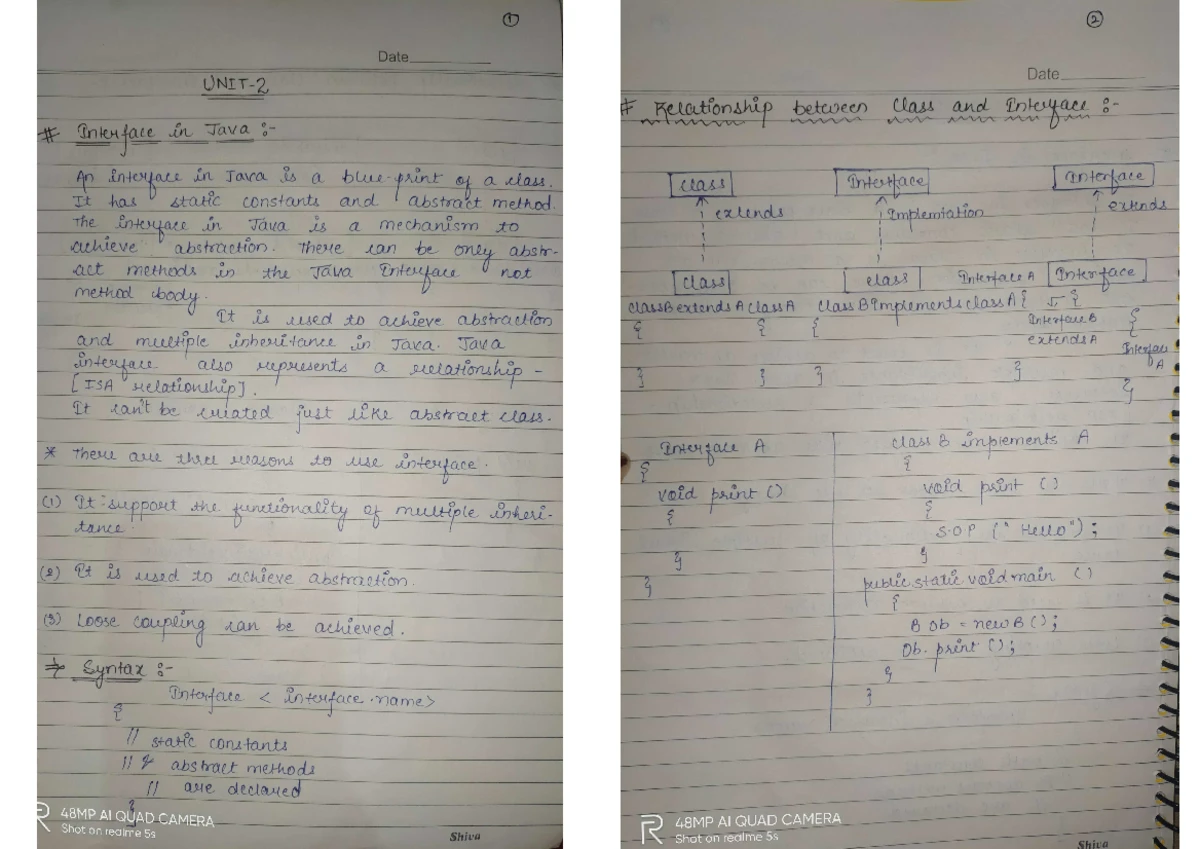 ①
Date
UNIT-2
# Interface in Java :-
An interface in Java is a blue-print of a class.
It has static constants and abstract method.
The interface in Java is a mechanism to
achieve abstraction. There can be only abstr-
act methods in the Java Interface not
method body.
It is used to achieve abstraction
and multiple inheritance in Java. Java
interface also represents a relationship -
[ISA relationship].
It can't be created just like abstract class.
* There are three reasons to use interface.
(1) It support the functionality of multiple inheri-
tance.
(2) It is used to achieve abstraction.
(3) Loose coupling can be achieved.
# Syntax :-
Interface < interface.name>
{
// static constants
// & abstract methods
// are declared
}
48MP AI QUAD CAMERA
Shot on realme 5s
Shiva
②
Date
# Relationship between Class and Interface :-
class Interface Interface
extends Implemtation extends
class class Interface A Interface
class B extends A class A class B Implements class A { {
{ { { Interface B {
extends A
Interface
A
} } } }
}
Interface A
{
void print ()
{
}
}
class B implements A
{
void print ()
{
S.O.P (" Hello");
}
public static void main ()
{
B Ob = new B ();
Ob. print ();
}
}
48MP AI QUAD CAMERA
Shot on realme 5s
Shiva